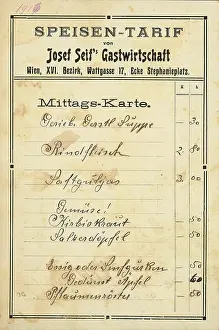 1918
SPEISEN-TARIF
von
Josef Seif's Gastwirtschaft
Wien, XVI. Bezirk, Wattgasse 17, Ecke Stephanieplatz.
K h
Mittags-Karte.
Gerieb. Gerstl Suppe — 30
Rindfleisch 2 80
Saftgulyas 3 00
Gemüse!
Kürbiskraut — 50
Salzerdöpfel — 50
Essig oder Senfgurken — 50
Gedünst. Apfel — 60
Pflaumenröster — 50